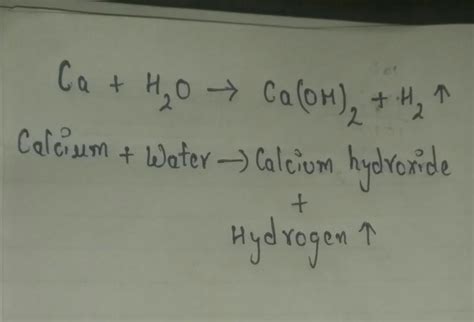 Ca + H₂O → Ca(OH)₂ + H₂ ↑
Calcium + Water → Calcium hydroxide
+
Hydrogen ↑